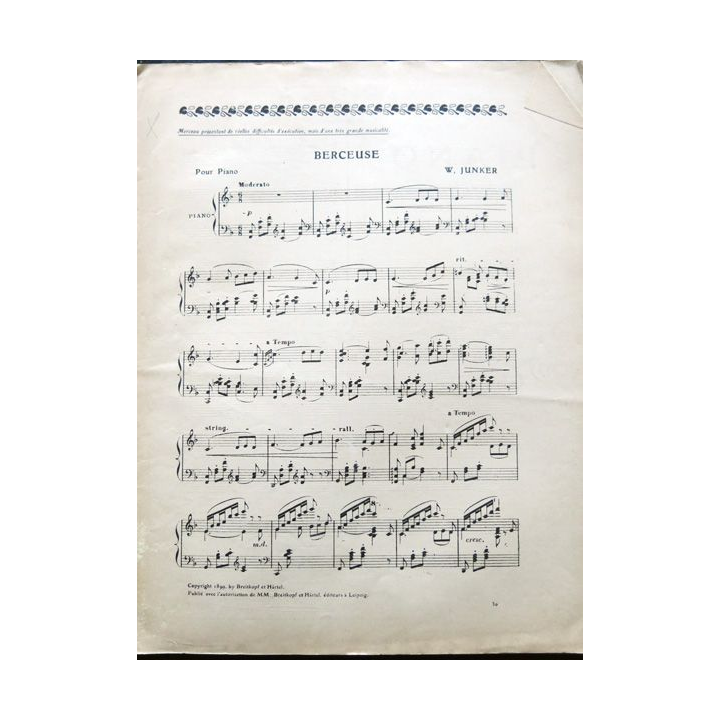 Morceau présentant de réelles difficultés d'exécution, mais d'une très grande musicalité.
BERCEUSE
Pour Piano
W. JUNKER
Moderato
PIANO
p
p
rit.
a Tempo
string.
rall.
a Tempo
m.d.
cresc.
Copyright 1899, by Breitkopf et Härtel.
Publié avec l'autorisation de MM. Breitkopf et Härtel, éditeurs à Leipzig.